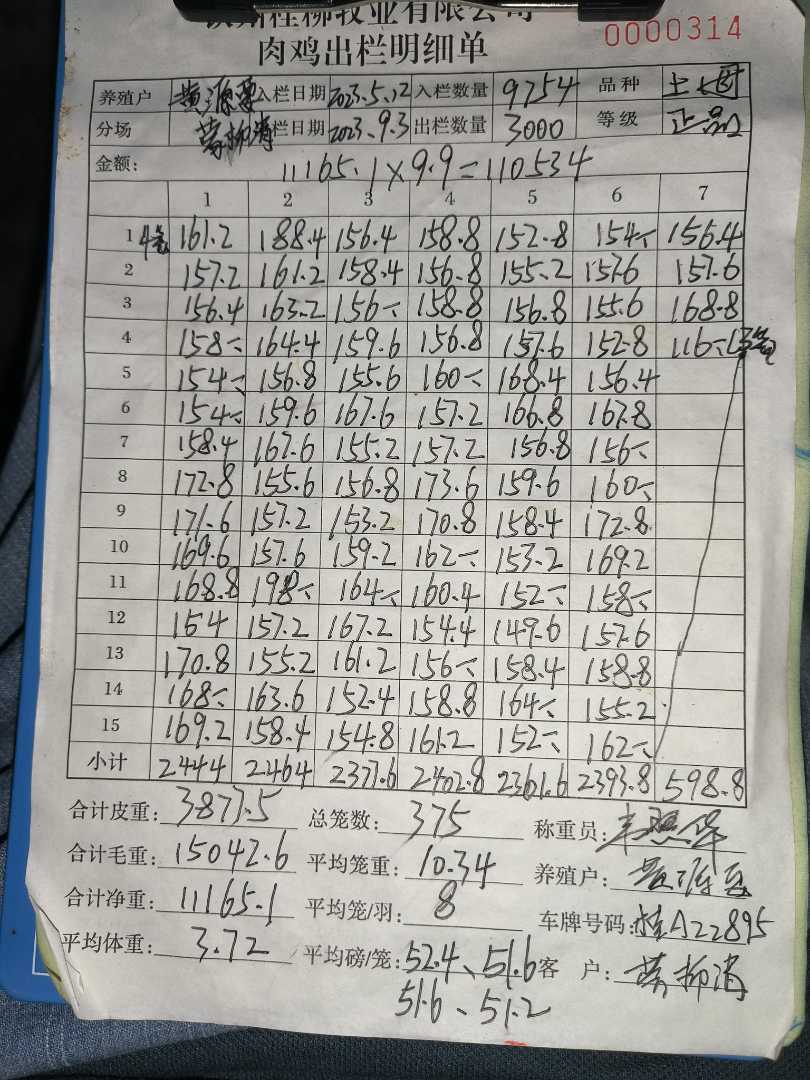 桂柳牧业有限公司
肉鸡出栏明细单 0000314
养殖户 黄源 入栏日期 2023.5.12 入栏数量 9754 品种 土大
分场 栏日期 2023.9.3 出栏数量 3000 等级 正品
金额: 11165.1×9.9=110534
1 2 3 4 5 6 7
1 4笼 161.2 188.4 156.4 158.8 152.8 154÷ 156.4
2 157.2 161.2 158.4 156.8 155.2 157.6 157.6
3 156.4 163.2 156÷ 158.8 156.8 155.6 168.8
4 158÷ 164.4 159.6 156.8 157.6 152.8 116÷(3笼)
5 154÷ 156.8 155.6 160÷ 168.4 156.4
6 154÷ 159.6 167.6 157.2 166.8 167.8
7 158.4 167.6 155.2 157.2 156.8 156÷
8 172.8 155.6 156.8 173.6 159.6 160÷
9 171.6 157.2 153.2 170.8 158.4 172.8
10 169.6 157.6 159.2 162÷ 153.2 169.2
11 168.8 198÷ 164÷ 160.4 152÷ 158÷
12 154 157.2 167.2 154.4 149.6 157.6
13 170.8 155.2 161.2 156÷ 158.4 158.8
14 168÷ 163.6 152.4 158.8 164÷ 155.2
15 169.2 158.4 154.8 161.2 152÷ 162÷
小计 2444 2464 2377.6 2402.8 2361.6 2393.8 598.8
合计皮重: 3877.5 总笼数: 375 称重员:
合计毛重: 15042.6 平均笼重: 10.34 养殖户: 黄源
合计净重: 11165.1 平均笼/羽: 8 车牌号码: 桂A22895
平均体重: 3.72 平均磅/笼: 52.4、51.6 客户:
51.6、51.2